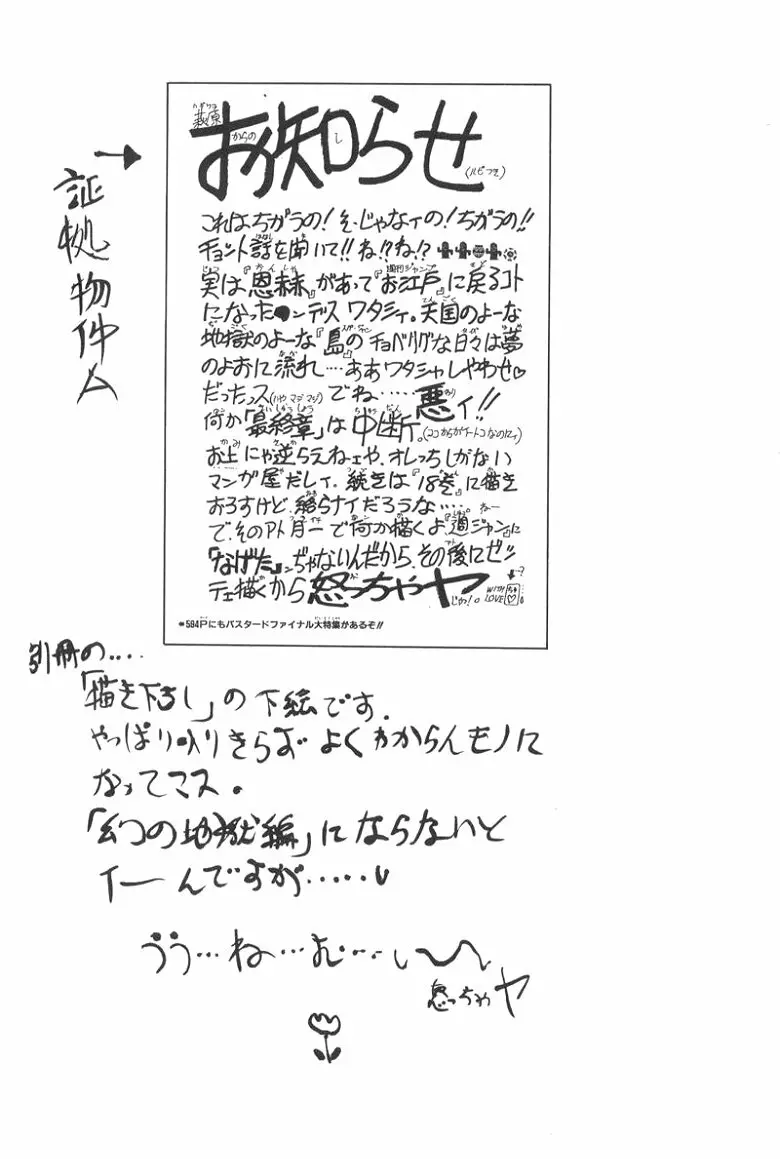 証拠物件A
萩原からのお知らせ
ハギワラ
し
(ルビつき)
これはちがうの!そーじゃなィの!ちがうの!!
チョント話を聞いて!!ね!?ね!?
実は『恩赦』があって『お江戸』に戻るコト
になったンデス ワタシィ。天国のよーな
地獄のよーな『島』のチョベリグな日々は夢
のよおに流れ…ああワタシャしやわせ♡
だったっス(ハヤ マジ マジ)でね……悪ィ!!
何か「最終章」は中断。(ココからがイートコなのにィ)
お上にゃ逆らえねェや、オレっちしがない
マンガ屋だしィ。続きは『18巻』に描き
おろすけど、終らナイだろうな……ねー
で、そのアト月一で何か描くよ、『週ジャン』に
「なげた」ンぢゃないんだから、その後にゼッ
テェ描くから怒っちゃヤじゃ!。
WITH LOVE
*594Pにもバスタードファイナル大特集があるぞ!!
別冊の‥‥
「描き下ろし」の下絵です.
やっぱり入りきらず よくわからんモノに
なってマス。
「幻の地獄編」にならないと
イーんですが‥‥‥
ううう…ね…む…い〜
怒っちゃヤ